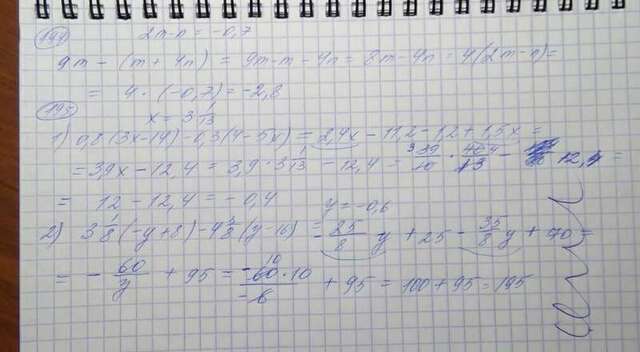 194 2m-n = -0,7
9m - (m + 4n) = 9m - m - 4n = 8m - 4n = 4(2m - n) =
= 4 · (-0,7) = -2,8
195 x = 3 1/13
1) 0,8(3x-14) - 0,3(4-5x) = 2,4x - 11,2 - 1,2 + 1,5x =
= 3,9x - 12,4 = 3,9 · 3 1/13 - 12,4 = 39/10 · 40/13 - 12,4 =
= 12 - 12,4 = -0,4 y = -0,6
2) 3 1/8 (-y+8) - 4 3/8 (y-16) = -25/8 y + 25 - 35/8 y + 70 =
= - 60/y + 95 = -60·10/-6 + 95 = 100 + 95 = 195